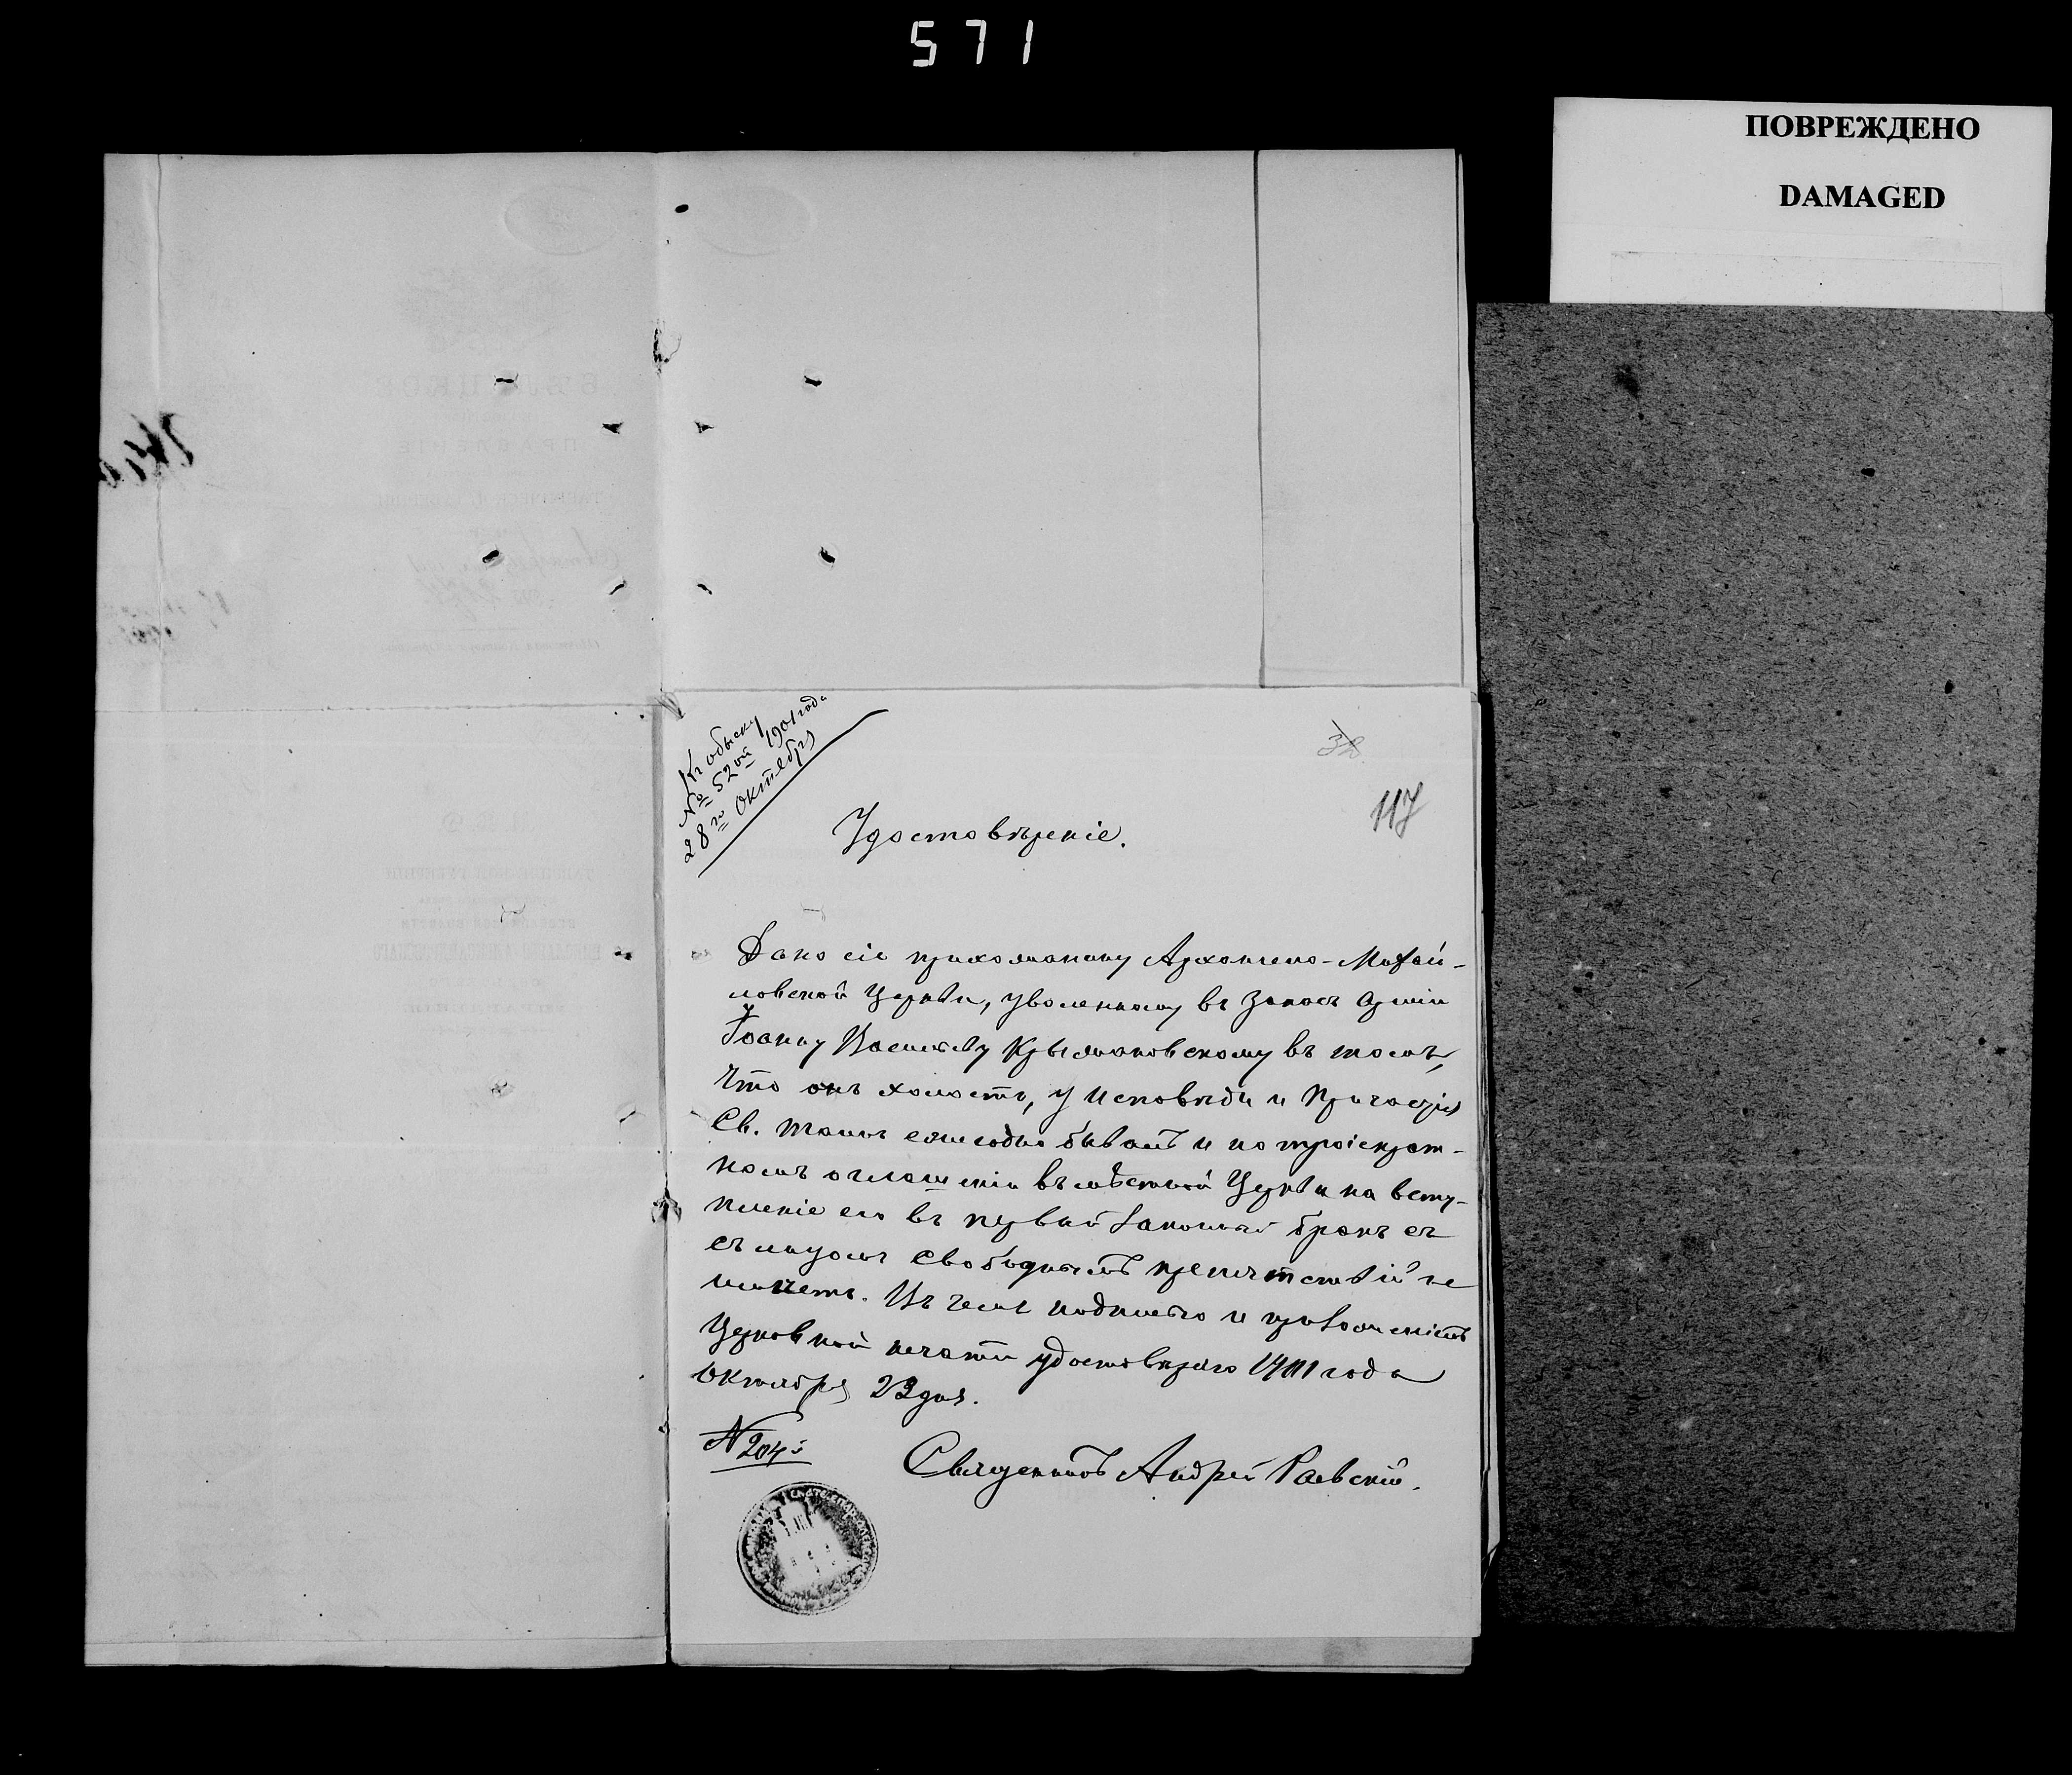 571
ПОВРЕЖДЕНО
DAMAGED
Къ обыску
№ 52ой 1901 года
28го Октября
32
117
Удостовѣреніе.
Дано сіе прихожанину Архангело-Михай-
ловской Церкви, уволенному въ запасъ арміи
Іоанну Васильеву Крыжановскому въ томъ,
что онъ холостъ, у Исповѣди и Причастія
Св. Таинъ ежегодно бываетъ и по троекрат-
номъ оглашеніи въ мѣстной Церкви на всту-
пленіе его въ первый законный бракъ съ
съ лицомъ свободнымъ препятствій не
имѣетъ. Въ чемъ подписью и приложеніемъ
Церковной печати удостовѣряю 1901 года
Октября 23 дня.
№ 204й
Священникъ Андрей Раевскій.